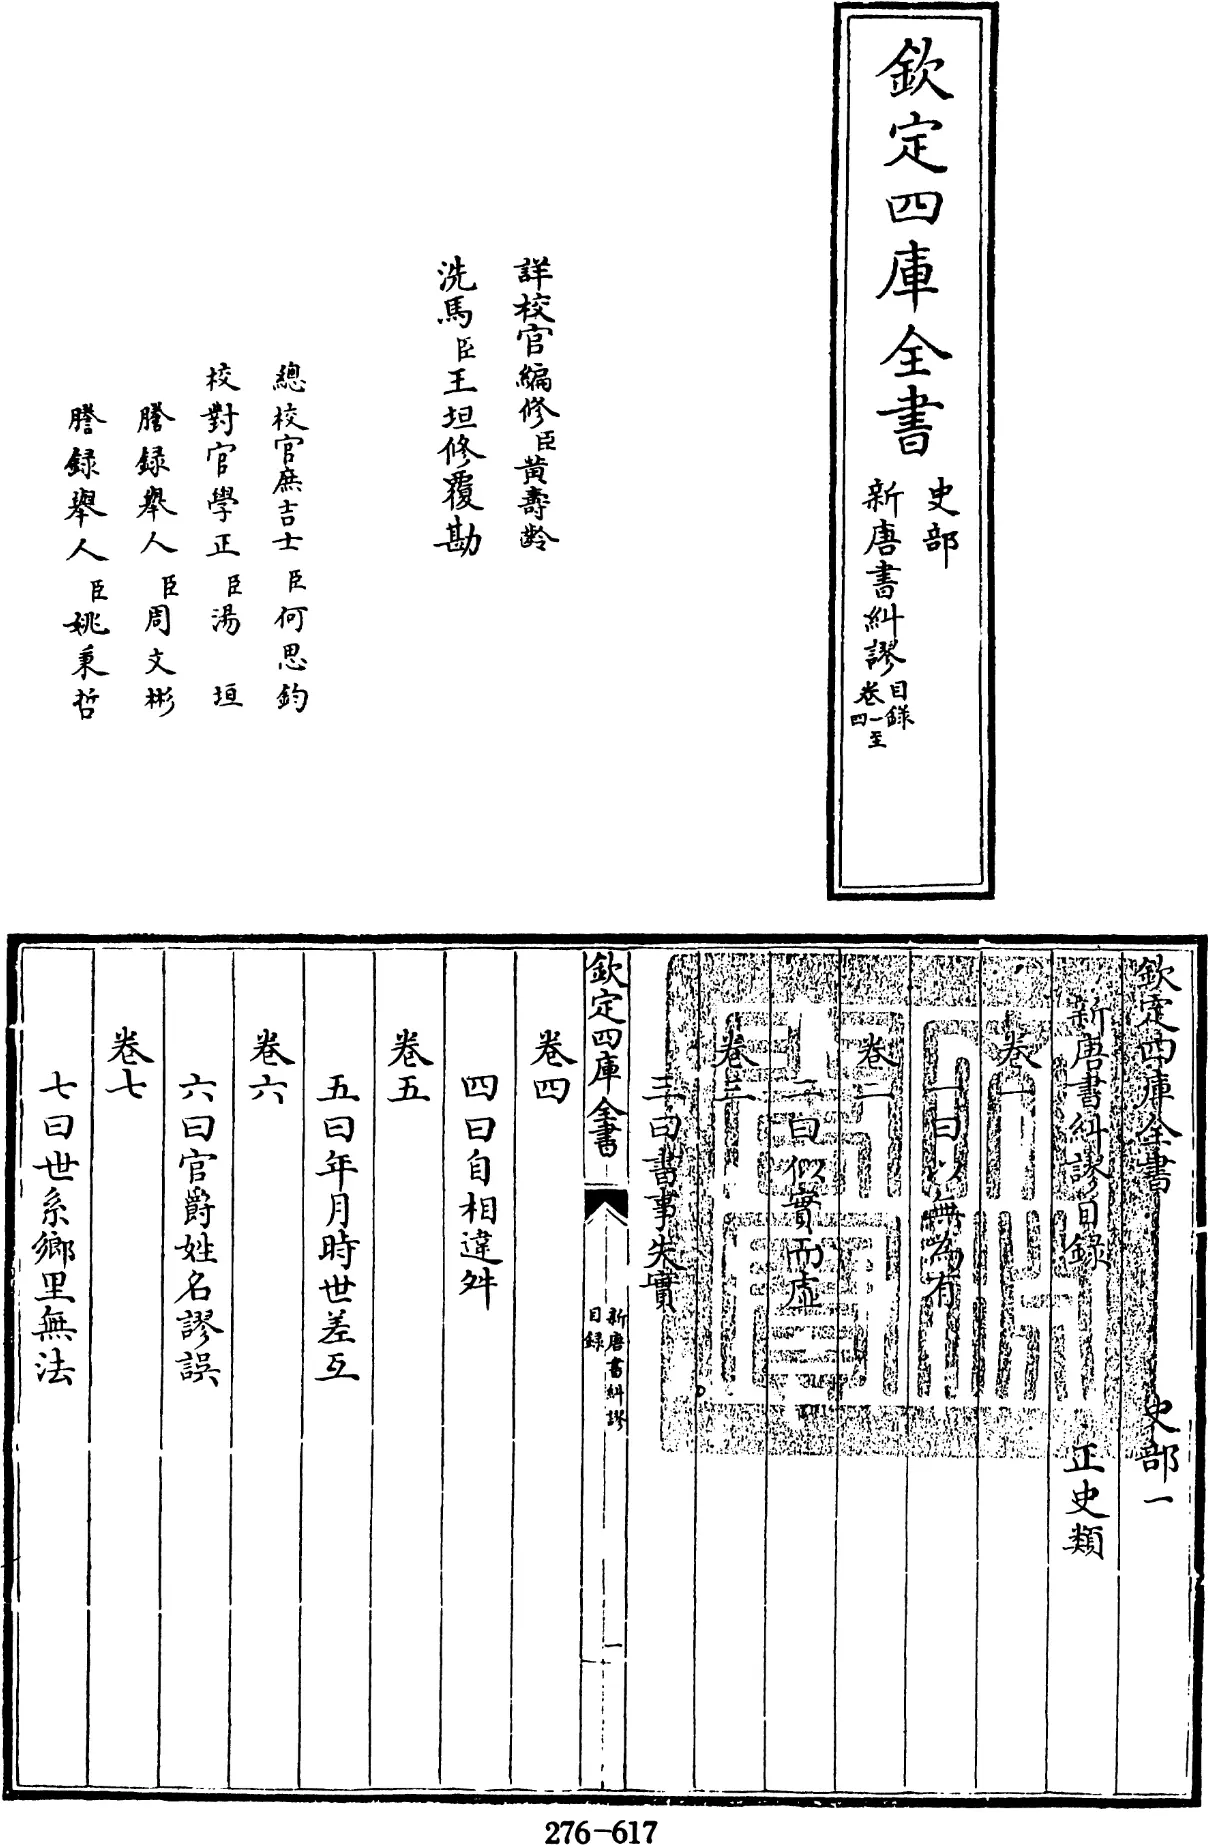 欽定四庫全書
史部
新唐書糾謬
目錄
卷一至
四
詳校官編修臣黃壽齡
洗馬臣王坦修覆勘
總校官庶吉士臣何思鈞
校對官學正臣湯垣
謄錄舉人臣周文彬
謄錄舉人臣姚秉哲
欽定四庫全書
史部一
新唐書糾謬目錄
正史類
卷一
一曰以無為有
卷二
二曰似實而虛
卷三
三曰書事失實
欽定四庫全書
新唐書糾謬
目錄
一
卷四
四曰自相違舛
卷五
五曰年月時世差互
卷六
六曰官爵姓名謬誤
卷七
七曰世系鄉里無法
276-617